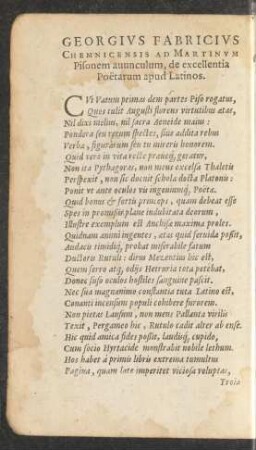 GEORGIVS FABRICIVS
CHEMNICENSIS AD MARTINVM
Pisonem auunculum, de excellentia
Poëtarum apud Latinos.
CVi Vatum primas dem partes Piso rogatus,
Ques tulit Augusti florens virtutibus ætas,
Nil dixi vtilius, nil sacra Aeneide maius:
Pondera seu rerum spectes, siue addita rebus
Verba, figurarum seu tu mireris honorem.
Quid vero in vita rectè prauéq; geratur,
Non ita Pythagores, non mens excelsa Thaletis
Perspexit, non sic docuit schola docta Platonis:
Ponit vt ante oculos vis ingeniumq; Poëta.
Quid bonus & fortis princeps, quam debeat esse
Spes in promissis planè indubitata deorum,
Illustre exemplum est Anchisæ maxima proles.
Quidnam animi ingentes, ætas quid feruida possit,
Audacis timidiq; probat miserabile fatum
Ductoris Rutuli: dirus Mezentius hic est,
Quem ferro atq; odijs Hetruria tota petebat,
Donec suso oculos hostiles sanguine pascit.
Nec sua magnanimo constantia tuta Latino est,
Conanti incensum populi cohibere furorem.
Non pietas Lausum, non mens Pallanta virilis
Texit, Pergameo hic, Rutulo cadit alter ab ense.
Hic quid amica fides possit, laudisq; cupido,
Cum socio Hyrtacide monstrabit nobile lethum.
Hos habet à primis libris extrema tumultus
Pagina, quam latè imperitet viciosa voluptas,
Troia